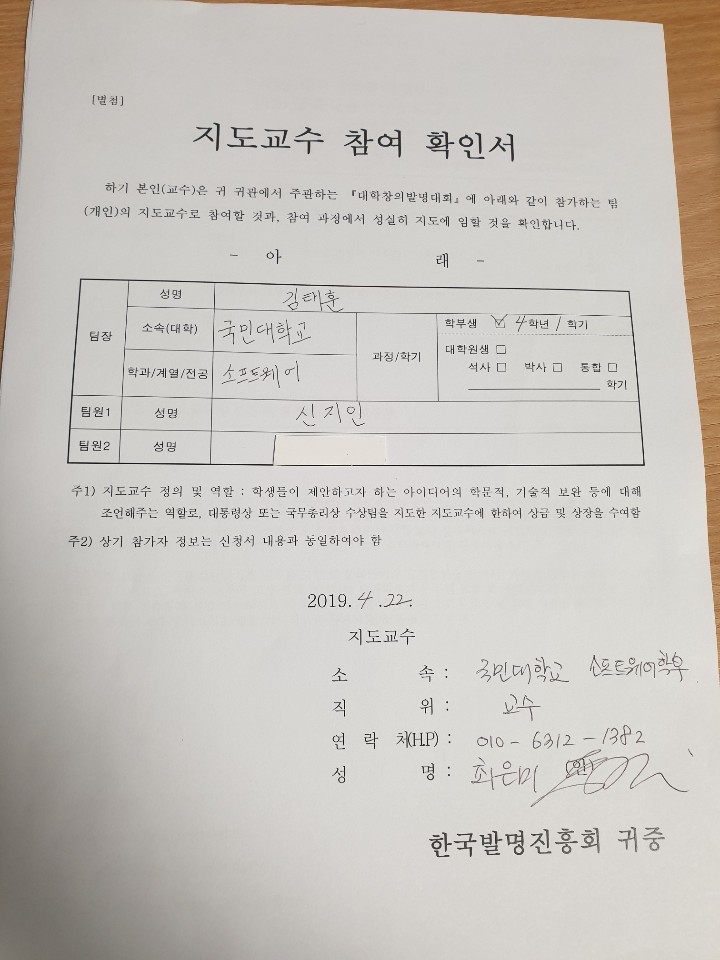 [별첨]
지도교수 참여 확인서
하기 본인(교수)은 귀 귀관에서 주관하는 『대학창의발명대회』에 아래와 같이 참가하는 팀
(개인)의 지도교수로 참여할 것과, 참여 과정에서 성실히 지도에 임할 것을 확인합니다.
- 아 래 -
팀장 성명 김태훈
소속(대학) 국민대학교
학과/계열/전공 소프트웨어
과정/학기 학부생 ☑ 4학년 1 학기
대학원생 □
석사 □ 박사 □ 통합 □
학기
팀원1 성명 신지인
팀원2 성명
주1) 지도교수 정의 및 역할 : 학생들이 제안하고자 하는 아이디어의 학문적, 기술적 보완 등에 대해
조언해주는 역할로, 대통령상 또는 국무총리상 수상팀을 지도한 지도교수에 한하여 상금 및 상장을 수여함
주2) 상기 참가자 정보는 신청서 내용과 동일하여야 함
2019. 4. 22.
지도교수
소 속 : 국민대학교 소프트웨어학부
직 위 : 교수
연 락 처(H.P) : 010-6312-1382
성 명 : 최은미 (인)
한국발명진흥회 귀중